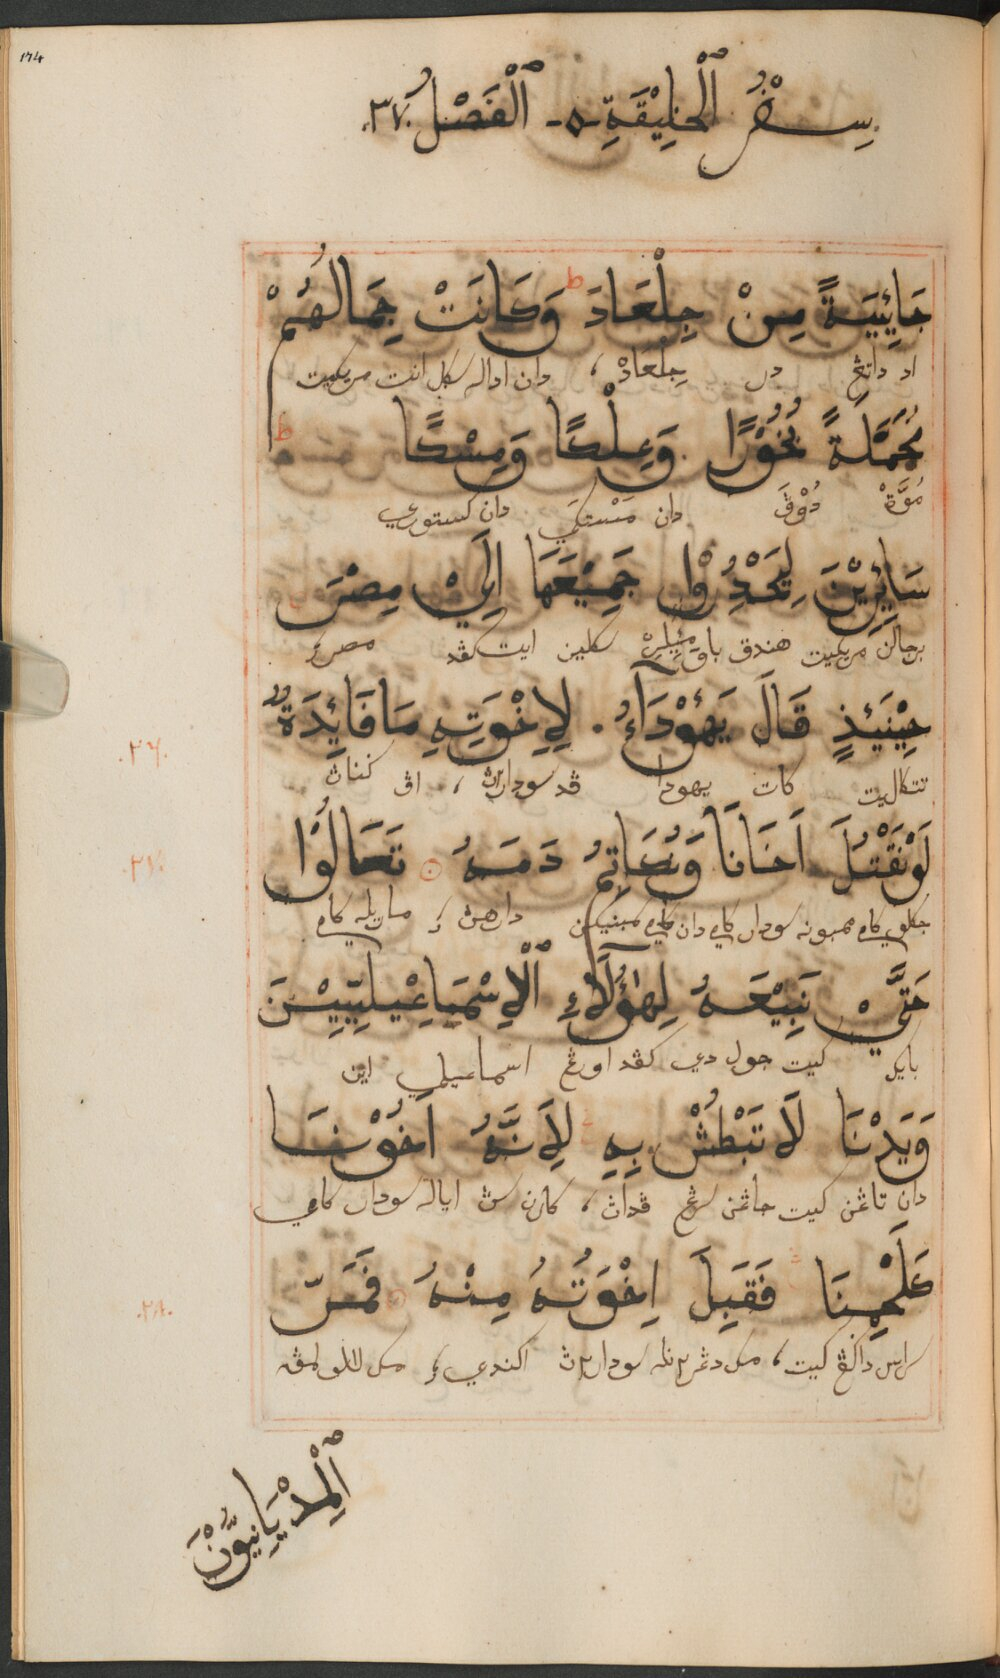 174
سِفْرُ ٱلْخَلِيْقَةِ - ٥ - ٱلْفَصْلُ .٣٧.
جَائِيَةً مِنْ جِلْعَادَ ط وَكَانَتْ جِمَالُهُمْ
اد داتڠ در جِلْعَادْ ، دان اداله سكل انت مريكيت
مُحَمَّلَةً بُخُوْرًا وَعِلْكًا وَمِسْكًا ط
مُوَّةْ دُوْڤَ دان مَسْتكِي دان كستوري
سَايِرِيْنَ لِيَحْدِرُوْا جَمِيْعَهَا اِلَيْ مِصْرَ
برجالن مريكيت هندق باو سكلين ايت كڤد مصر
.٢٦. حِيْنَيْئِذٍ قَالَ يَهُوْدَآءُ . لِاِخْوَتِهِ مَا فَائِدَةٌ
تتكاليت كات يهودا ڤد سودار٢ڽ ، اڤ كناڽ
.٢٧. لَوْ نَقْتُلَ اَخَانَا وَنُكَاتِمُ دَمَهُ تَعَالُوْا
جكلو كامي ممبونه سودار كامي دان كامي دارهڽ ماريله كامي
حَتَّيْ نَبِيْعَهُ لِهٰؤُلَآءِ ٱلْاِسْمَاعِيْلِيِّيْنَ
بايك كيت جول دي كڤد اورڠ اسماعيلي اين
وَيَدْنَا لَا تَبْطُشْ بِهِ لِاَنَّهُ اَخُوْنَا
دان تاڠن كيت جاڠن سرڠ ڤداڽ ، كارن سڽ اياله سودار كامي
.٢٨. وَلَحْمِنَا فَقَبِلَ اِخْوَتُهُ مِنْهُ فَمَرّ
داڬڠ كيت ، مك دڠر٢نله سودار٢ڽ اكندي ، مك للو
ٱلْمِدْيَانِيُّوْنَ